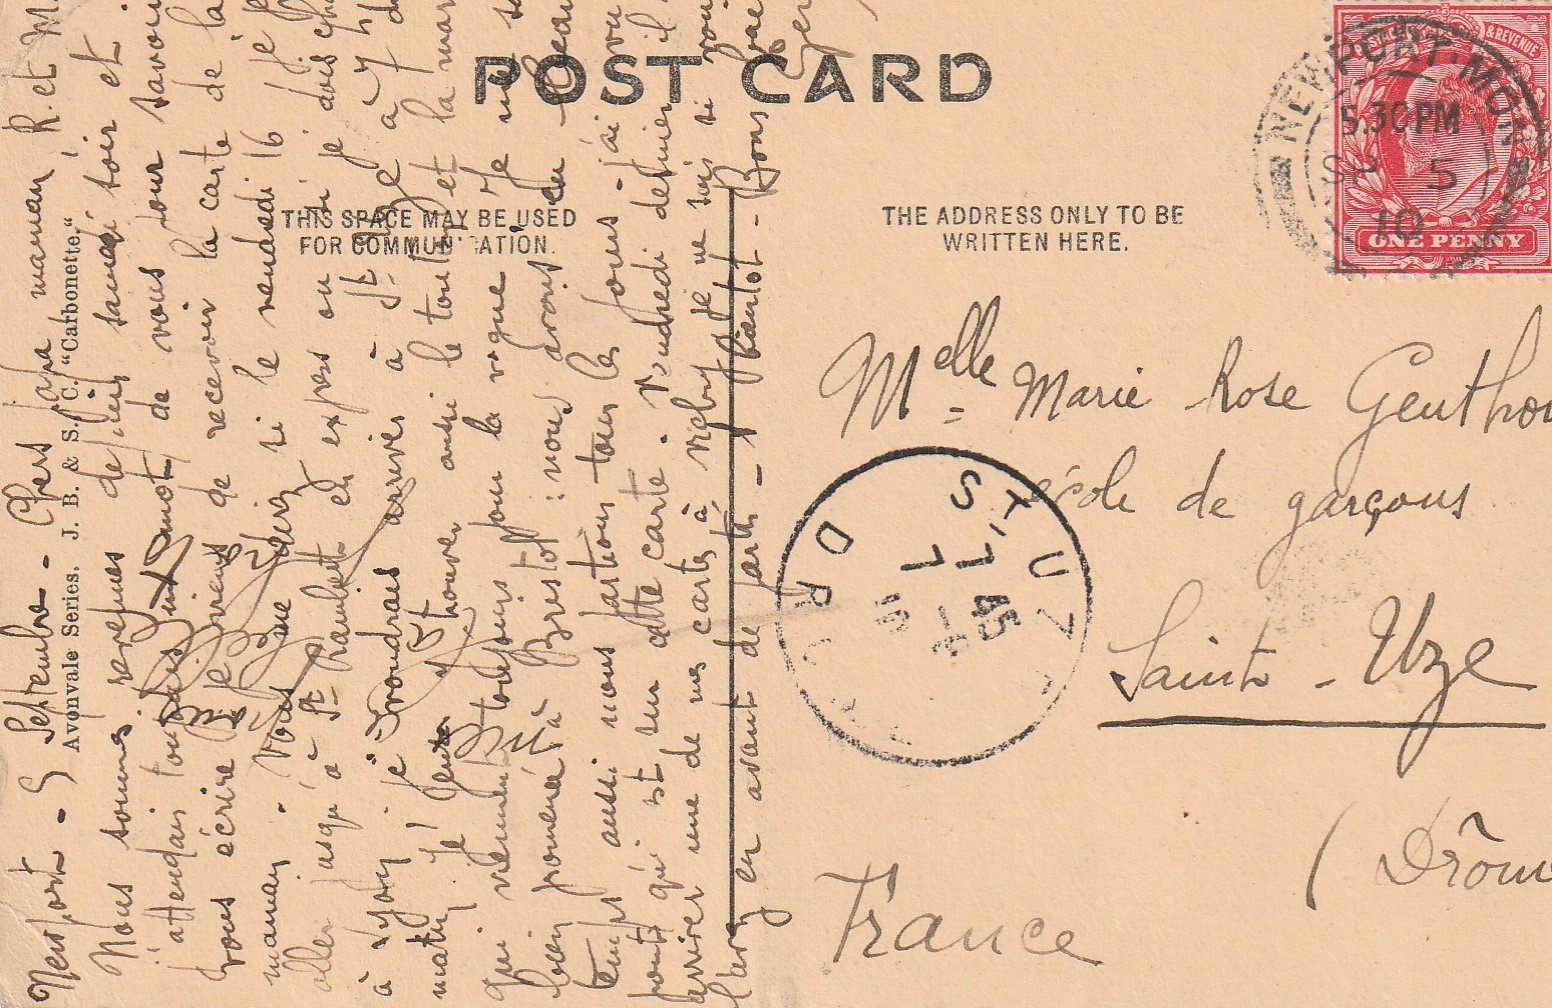 POST CARD
THIS SPACE MAY BE USED
FOR COMMUNICATION.
THE ADDRESS ONLY TO BE
WRITTEN HERE.
& REVENUE
ONE PENNY
NEWPORT. MON
5.30 PM
SP 5
10
Melle Marie Rose Genthon
école de garçons
Saint-Uze
(Drôme
France
ST. UZE
7 45
7 - 9
10
DROME
Avonvale Series. J. B. & S. C. "Carbonette."
Newport - 5 Septembre - Chers papa maman R. et M.
Nous sommes revenues depuis samedi soir et
j'attendais toujours un mot de vous pour savoir
vous écrire. Je viens de recevoir la carte de la
maman. Vous me direz si le vendredi 16
aller jusqu'à St Rambert en express ou si je dois
à Lyon je voudrais arriver à St à 7 h
matin. Je trouver aussi le tout et la
qui viennent toujours pour la vogue. Je me
bien promenée à Bristol : nous avons eu beau
temps aussi nous partions tous les jours - j'ai vu
pont qui est sur cette carte. Vendredi dernier il
arriver une de mes cartes à rugby je ne sais si vous
l'avez eu avant de partir - à bientôt - Bons